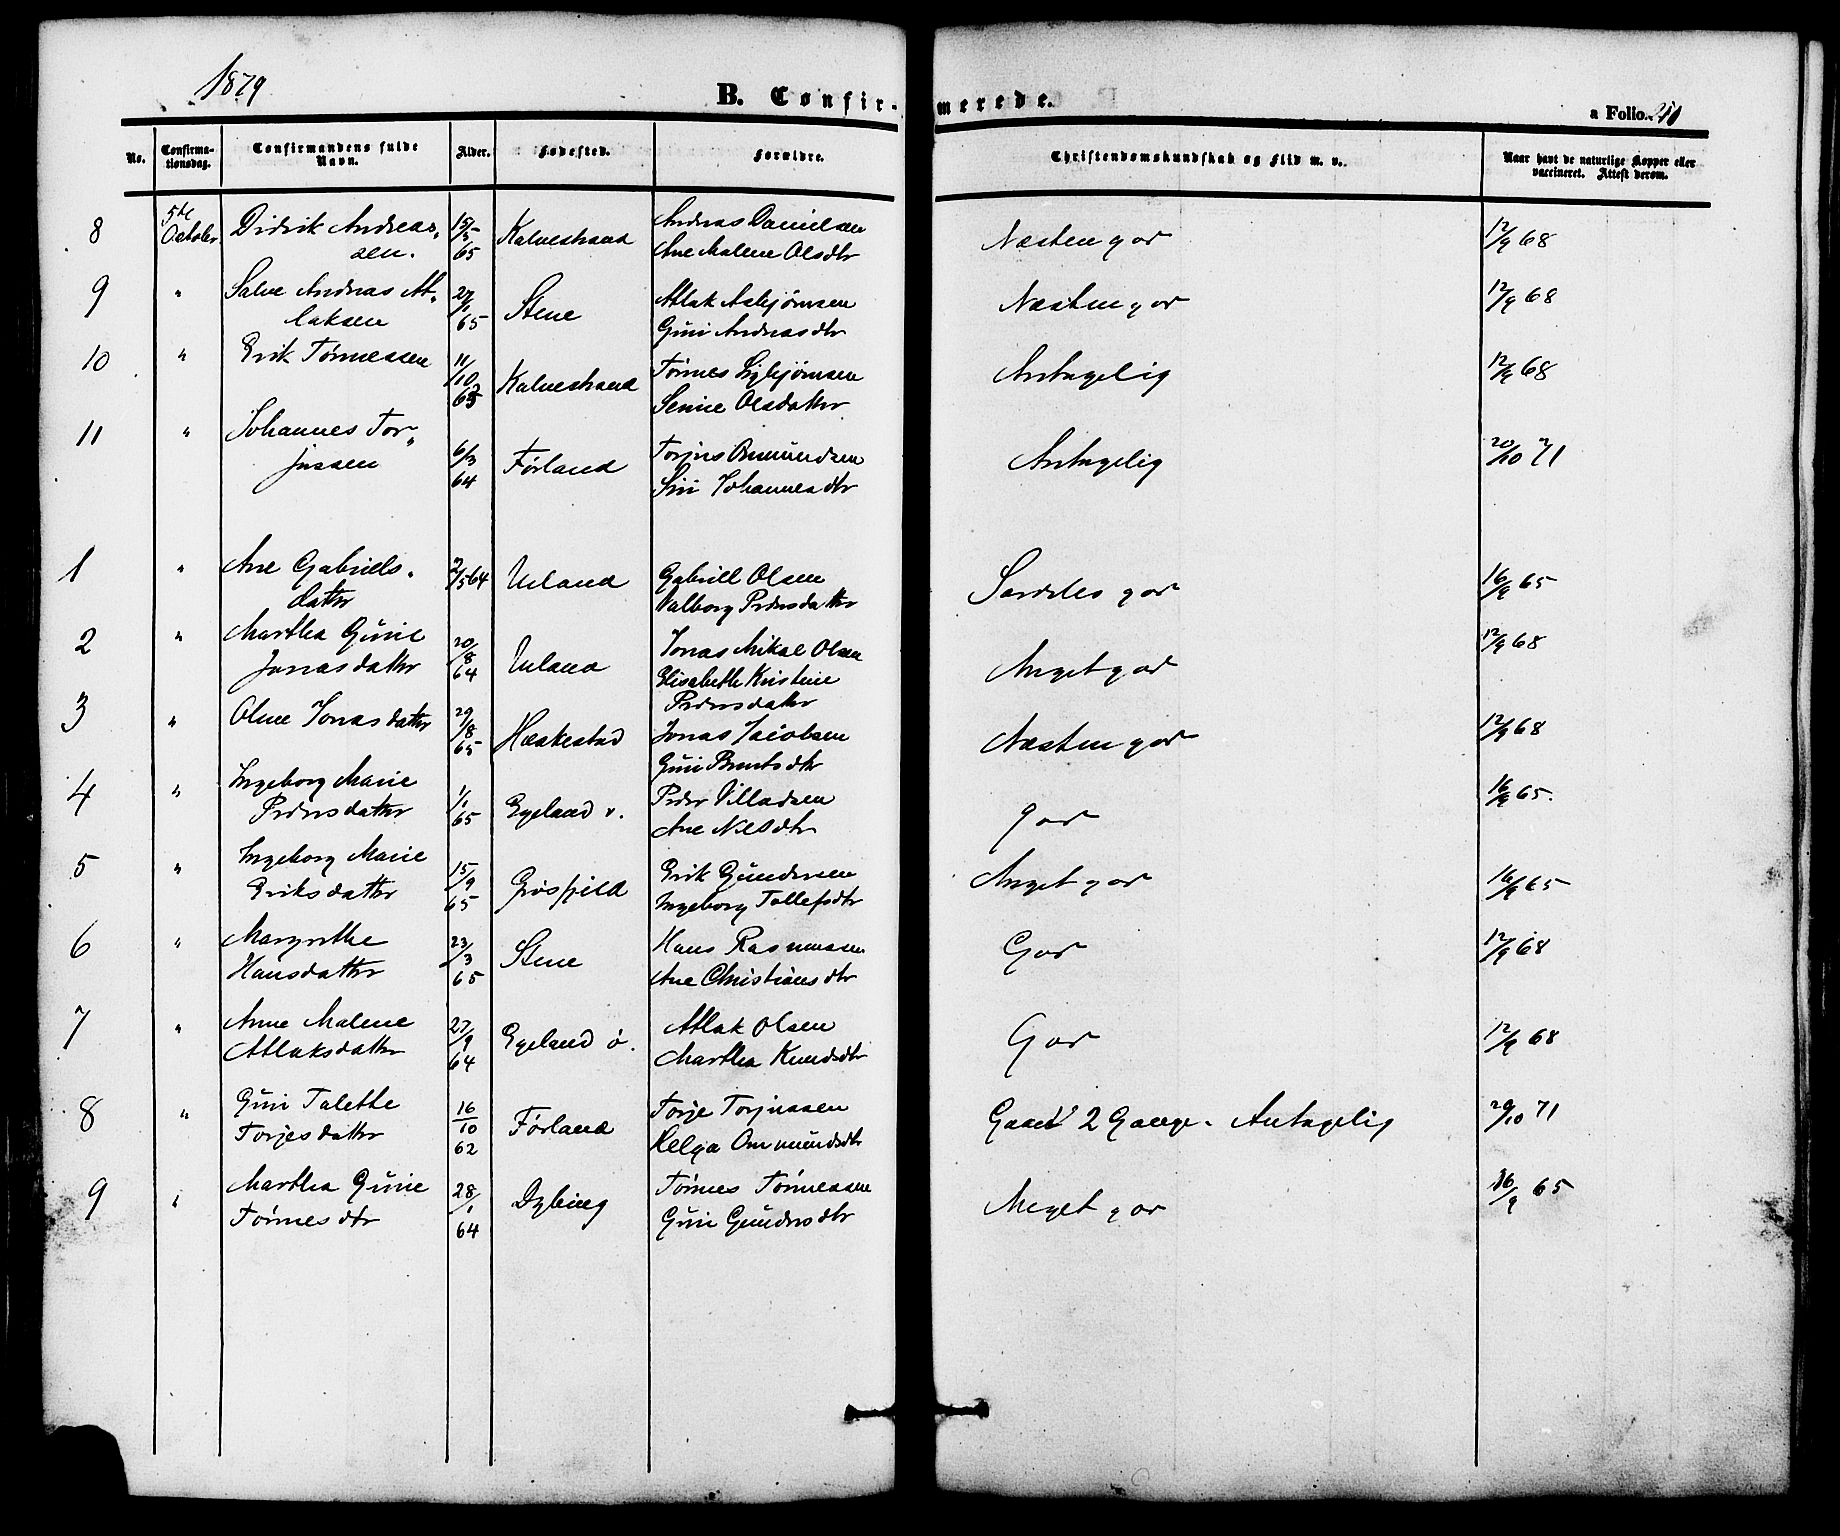 1879
B. Confir-
merede.
a Folio.
No.
Confirma-
tionsdag.
Confirmandens fulde
Navn.
Alder.
Fødested.
Forældre.
Christendomskundskab og Flid m. v.
Naar havt de naturlige Kopper eller
vaccineret. Attest derom.
8 5te October Didrik Andreas- sen. 15/5 65 Kalvestrand Andreas Danielsen Ane Malene Olsdtr Næsten god 12/9 68
9 " Salve Andreas At- laksen 27/1 65 Stene Atlak Asbjørnsen Guri Andreasdtr Næsten god 12/9 68
10 " Erik Tørnessen 11/10 63 Kalvestrand Tørnes Sigbjørnsen Serine Olsdatter Antagelig 12/9 68
11 " Johannes Tor- jussen 6/3 64 Førland Torjus Omundsen Siri Johannesdtr Antagelig 20/10 71
1 " Ane Gabriels- datter 2/5 64 Ueland Gabriell Olsen Valborg Pedersdatter Særdeles god 16/9 65
2 " Martha Gurie Jonasdatter 20/8 64 Ueland Jonas Mikal Olsen Elisabeth Kristine Pedersdatter Meget god 12/9 68
3 " Oline Jonasdatter 29/8 65 Hæskestad Jonas Jacobsen Guri Berntsdtr Næsten god 12/9 68
4 " Ingeborg Marie Pedersdatter 1/1 65 Egeland v. Peder Villadsen Ane Nilsdtr god 16/9 65.
5 " Ingeborg Marie Eriksdatter 15/9 65 Grøsfjeld Erik Gundersen Ingeborg Tollefsdtr Meget god 16/9 65
6 " Margrethe Hansdatter 23/3 65 Stene Hans Rasmussen Ane Christiansdtr God 12/9 68
7 " Anne Malene Atlaksdatter 27/9 64 Egeland ø. Atlak Olsen Martha Knudsdtr God 12/9 68
8 " Guri Talette Torjesdatter 16/10 62 Førland Torje Torjussen Helga Ommundsdtr Gaaet 2 Gange. Antagelig 20/10 71
9 " Martha Gurie Tørnesdtr 28/1 64 Dybing Tørnes Tørnessen Guri Gundersdtr Meget god 16/9 65